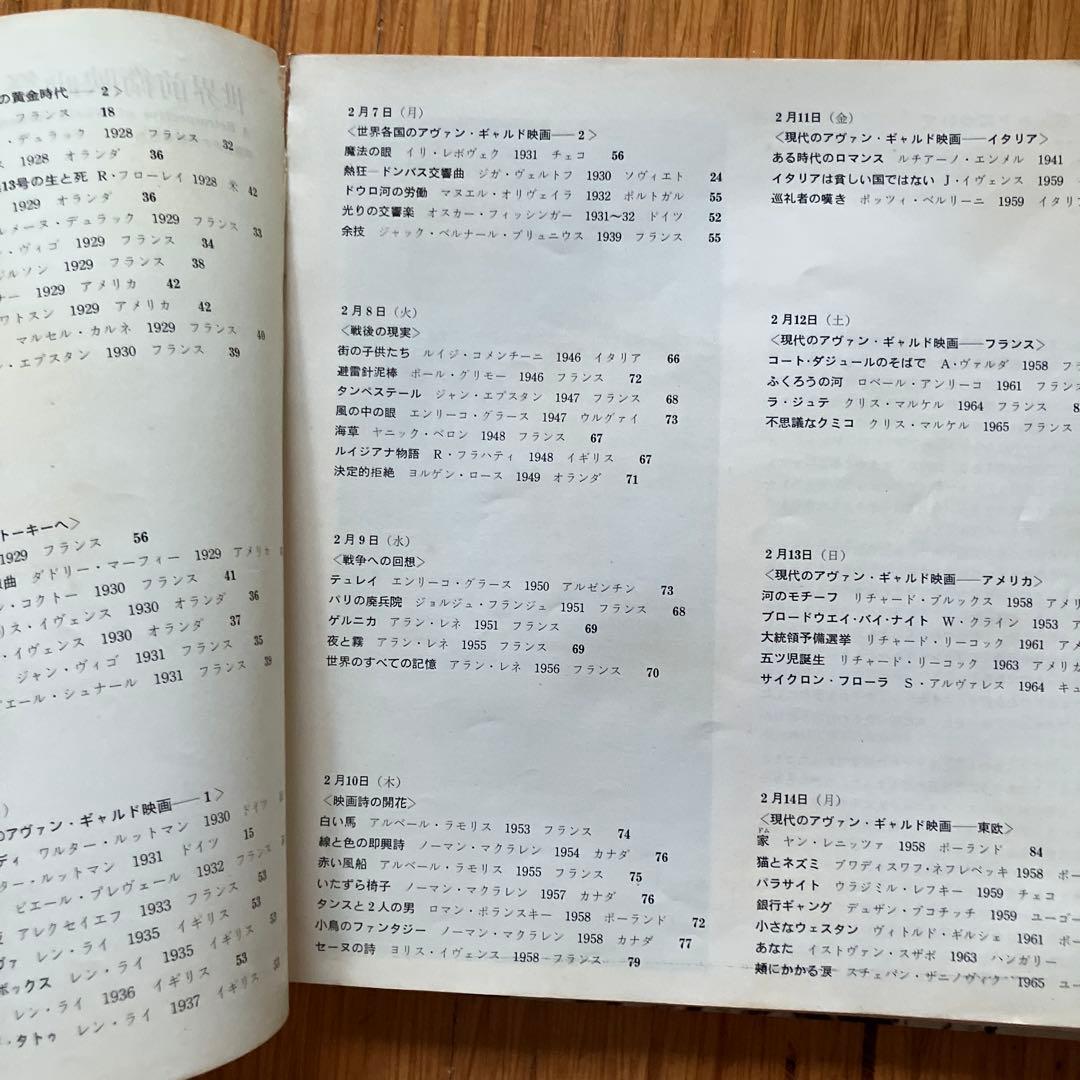 の黄金時代―― 2 >
フランス 18
・デュラック 1928 フランス 32
1928 オランダ 36
13号の生と死 R・フローレイ 1928 米 42
1929 オランダ 36
ルメーヌ・デュラック 1929 フランス 33
・ヴィゴ 1929 フランス 34
ジルソン 1929 フランス 38
ナー 1929 アメリカ 42
ワトスン 1929 アメリカ 42
マルセル・カルネ 1929 フランス 40
ン・エプスタン 1930 フランス 39
トーキーへ>
1929 フランス 56
曲 ダドリー・マーフィー 1929 アメリカ
ン・コクトー 1930 フランス 41
リス・イヴェンス 1930 オランダ 36
・イヴェンス 1930 オランダ 37
ジャン・ヴィゴ 1931 フランス 35
ピエール・シュナール 1931 フランス 39
のアヴァン・ギャルド映画―― 1 >
ディ ワルター・ルットマン 1930 ドイツ
ター・ルットマン 1931 ドイツ 15
ピエール・プレヴェール 1932 フランス
アレクセイエフ 1933 フランス 53
ヴァ レン・ライ 1935 イギリス 53
ボックス レン・ライ 1935 イギリス 53
レン・ライ 1936 イギリス 53
・タトゥ レン・ライ 1937 イギリス 53
2月7日(月)
<世界各国のアヴァン・ギャルド映画―― 2 >
魔法の眼 イリ・レボヴェク 1931 チェコ 56
熱狂―ドンバス交響曲 ジガ・ヴェルトフ 1930 ソヴィエト 24
ドウロ河の労働 マヌエル・オリヴェイラ 1932 ポルトガル 55
光りの交響楽 オスカー・フィッシンガー 1931〜32 ドイツ 52
余技 ジャック・ベルナール・ブリュニウス 1939 フランス 55
2月8日(火)
<戦後の現実>
街の子供たち ルイジ・コメンチーニ 1946 イタリア 66
避雷針泥棒 ポール・グリモー 1946 フランス 72
タンペステール ジャン・エプスタン 1947 フランス 68
風の中の眼 エンリーコ・グラース 1947 ウルグァイ 73
海草 ヤニック・ベロン 1948 フランス 67
ルイジアナ物語 R・フラハティ 1948 イギリス 67
決定的拒絶 ヨルゲン・ロース 1949 オランダ 71
2月9日(水)
<戦争への回想>
テュレイ エンリーコ・グラース 1950 アルゼンチン 73
パリの廃兵院 ジョルジュ・フランジュ 1951 フランス 68
ゲルニカ アラン・レネ 1951 フランス 69
夜と霧 アラン・レネ 1955 フランス 69
世界のすべての記憶 アラン・レネ 1956 フランス 70
2月10日(木)
<映画詩の開花>
白い馬 アルベール・ラモリス 1953 フランス 74
線と色の即興詩 ノーマン・マクラレン 1954 カナダ 76
赤い風船 アルベール・ラモリス 1955 フランス 75
いたずら椅子 ノーマン・マクラレン 1957 カナダ 76
タンスと2人の男 ロマン・ポランスキー 1958 ポーランド 72
小鳥のファンタジー ノーマン・マクラレン 1958 カナダ 77
セーヌの詩 ヨリス・イヴェンス 1958 フランス 79
2月11日(金)
<現代のアヴァン・ギャルド映画――イタリア>
ある時代のロマンス ルチアーノ・エンメル 1941
イタリアは貧しい国ではない J・イヴェンス 1959
巡礼者の嘆き ポッツィ・ベルリーニ 1959 イタリ
2月12日(土)
<現代のアヴァン・ギャルド映画――フランス>
コート・ダジュールのそばで A・ヴァルダ 1958 フ
ふくろうの河 ロベール・アンリーコ 1961 フラン
ラ・ジュテ クリス・マルケル 1964 フランス 8
不思議なクミコ クリス・マルケル 1965 フランス
2月13日(日)
<現代のアヴァン・ギャルド映画――アメリカ>
河のモチーフ リチャード・ブルックス 1958 アメリ
ブロードウエイ・バイ・ナイト W・クライン 1953 ア
大統領予備選挙 リチャード・リーコック 1961 ア
五ツ児誕生 リチャード・リーコック 1963 アメリカ
サイクロン・フローラ S・アルヴァレス 1964 キュ
2月14日(月)
<現代のアヴァン・ギャルド映画――東欧>
ドム
家 ヤン・レニッツァ 1958 ポーランド 84
猫とネズミ ブワディスワフ・ネフレベッキ 1958 ポー
パラサイト ウラジミル・レフキー 1959 チェコ
銀行ギャング デュザン・ブコチッチ 1959 ユーゴー
小さなウェスタン ヴィトルド・ギルシェ 1961 ポー
あなた イストヴァン・スザボ 1963 ハンガリー
頬にかかる涙 スチェパン・ザニノヴィク 1965 ユー